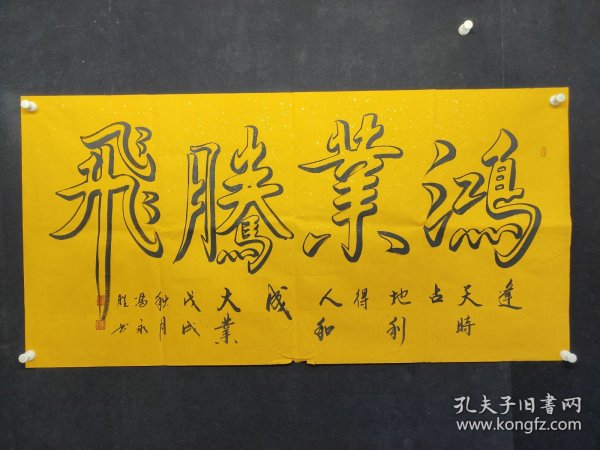 鴻業騰飛
逢
天時
占
地利
得
人和
成
大業
戊戌
秋月
馮永
胜书
孔夫子旧書网
www.kongfz.com